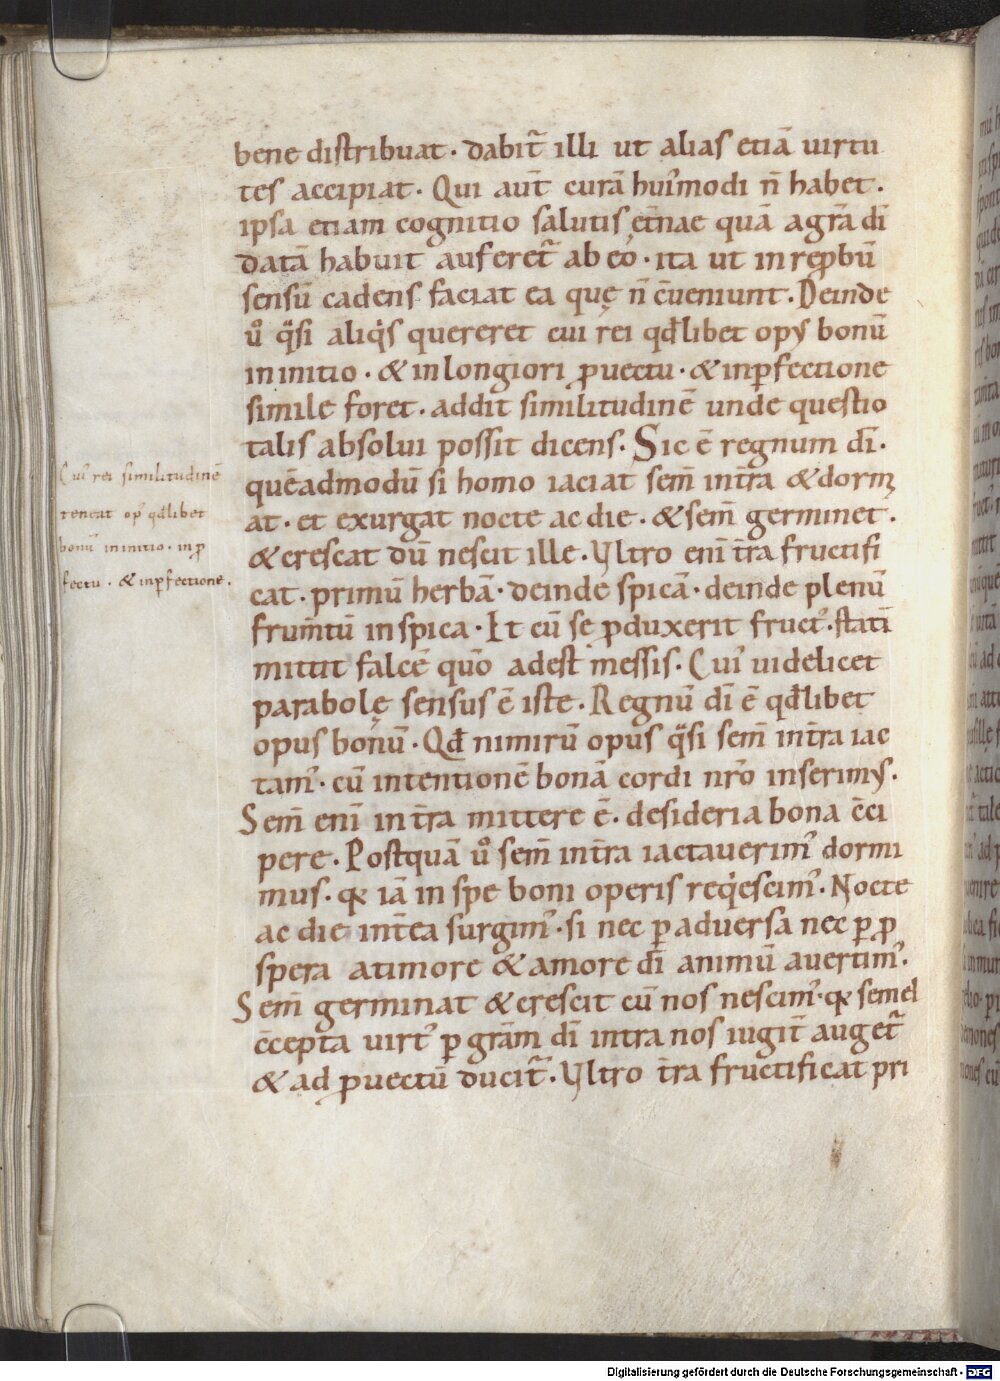 bene distribuat · dabit̃ illi ut alias etiā uirtu
tes accipiat · Qui aut̄ curā hui᾽modi n̄ habet ·
ipsa etiam cognitio salutis ęt̄nae quā agr̄a dī
datā habuit auferet̃ ab eo · ita ut in reꝓbū
sensū cadens faciat ea quę n̄ c̄ueniunt · Deinde
uº qᷓsi aliqͥs quereret cui rei qđlibet opꝰ bonū
in initio · & in longiori ꝓuectu · & in ꝑfectione
simile foret · addit similitudinē unde questio
talis absolui possit dicens · Sic ē regnum dī ·
quēadmodū si homo iaciat sem̄ int̄ra & dormi
at · et exurgat nocte ac die · & sem̄ germinet ·
& crescat dū nescit ille · Vltro eni t̄ra fructifi
cat · primū herbā · deinde spicā · deinde plenū
frum̄tū in spica · Et cū se ꝓduxerit fruct᾽ · statī
mittit falcē quō adest messis · Cui᾽ uidelicet
parabolę sensus ē iste · Regnū dī ē qđlibet
opus bonū · Qđ nimirū opus qᷓsi sem̄ int̄ra iac
tam᾽ · cū intentionē bonā cordi nr̄o inserimꝰ ·
Sem̄ enī int̄ra mittere ē · desideria bona c̄ci
pere · Postquā uº sem̄ int̄ra iactauerim᾽ dormi
mus · qꝛ iā in spe boni operis reqͥescim᾽ · Nocte
ac die int̄ea surgim᾽ · si nec ꝑ aduersa nec ꝑ ꝓ
spera atimore & amore dī animū auertim᾽ ·
Sem̄ germinat & crescit cū nos nescim᾽ · qꝛ semel
c̄cepta uirt᾽ ꝑ grām dī intra nos iugit̄ auget̃
& ad ꝓuectū ducit̃ · Vltro t̄ra fructificat pri
Cui᾽ rei similitudinē
teneat op᾽ qđlibet
bonū in initio · in ꝓ
fectu · & in ꝑfectione ·
Digitalisierung gefördert durch die Deutsche Forschungsgemeinschaft - DFG